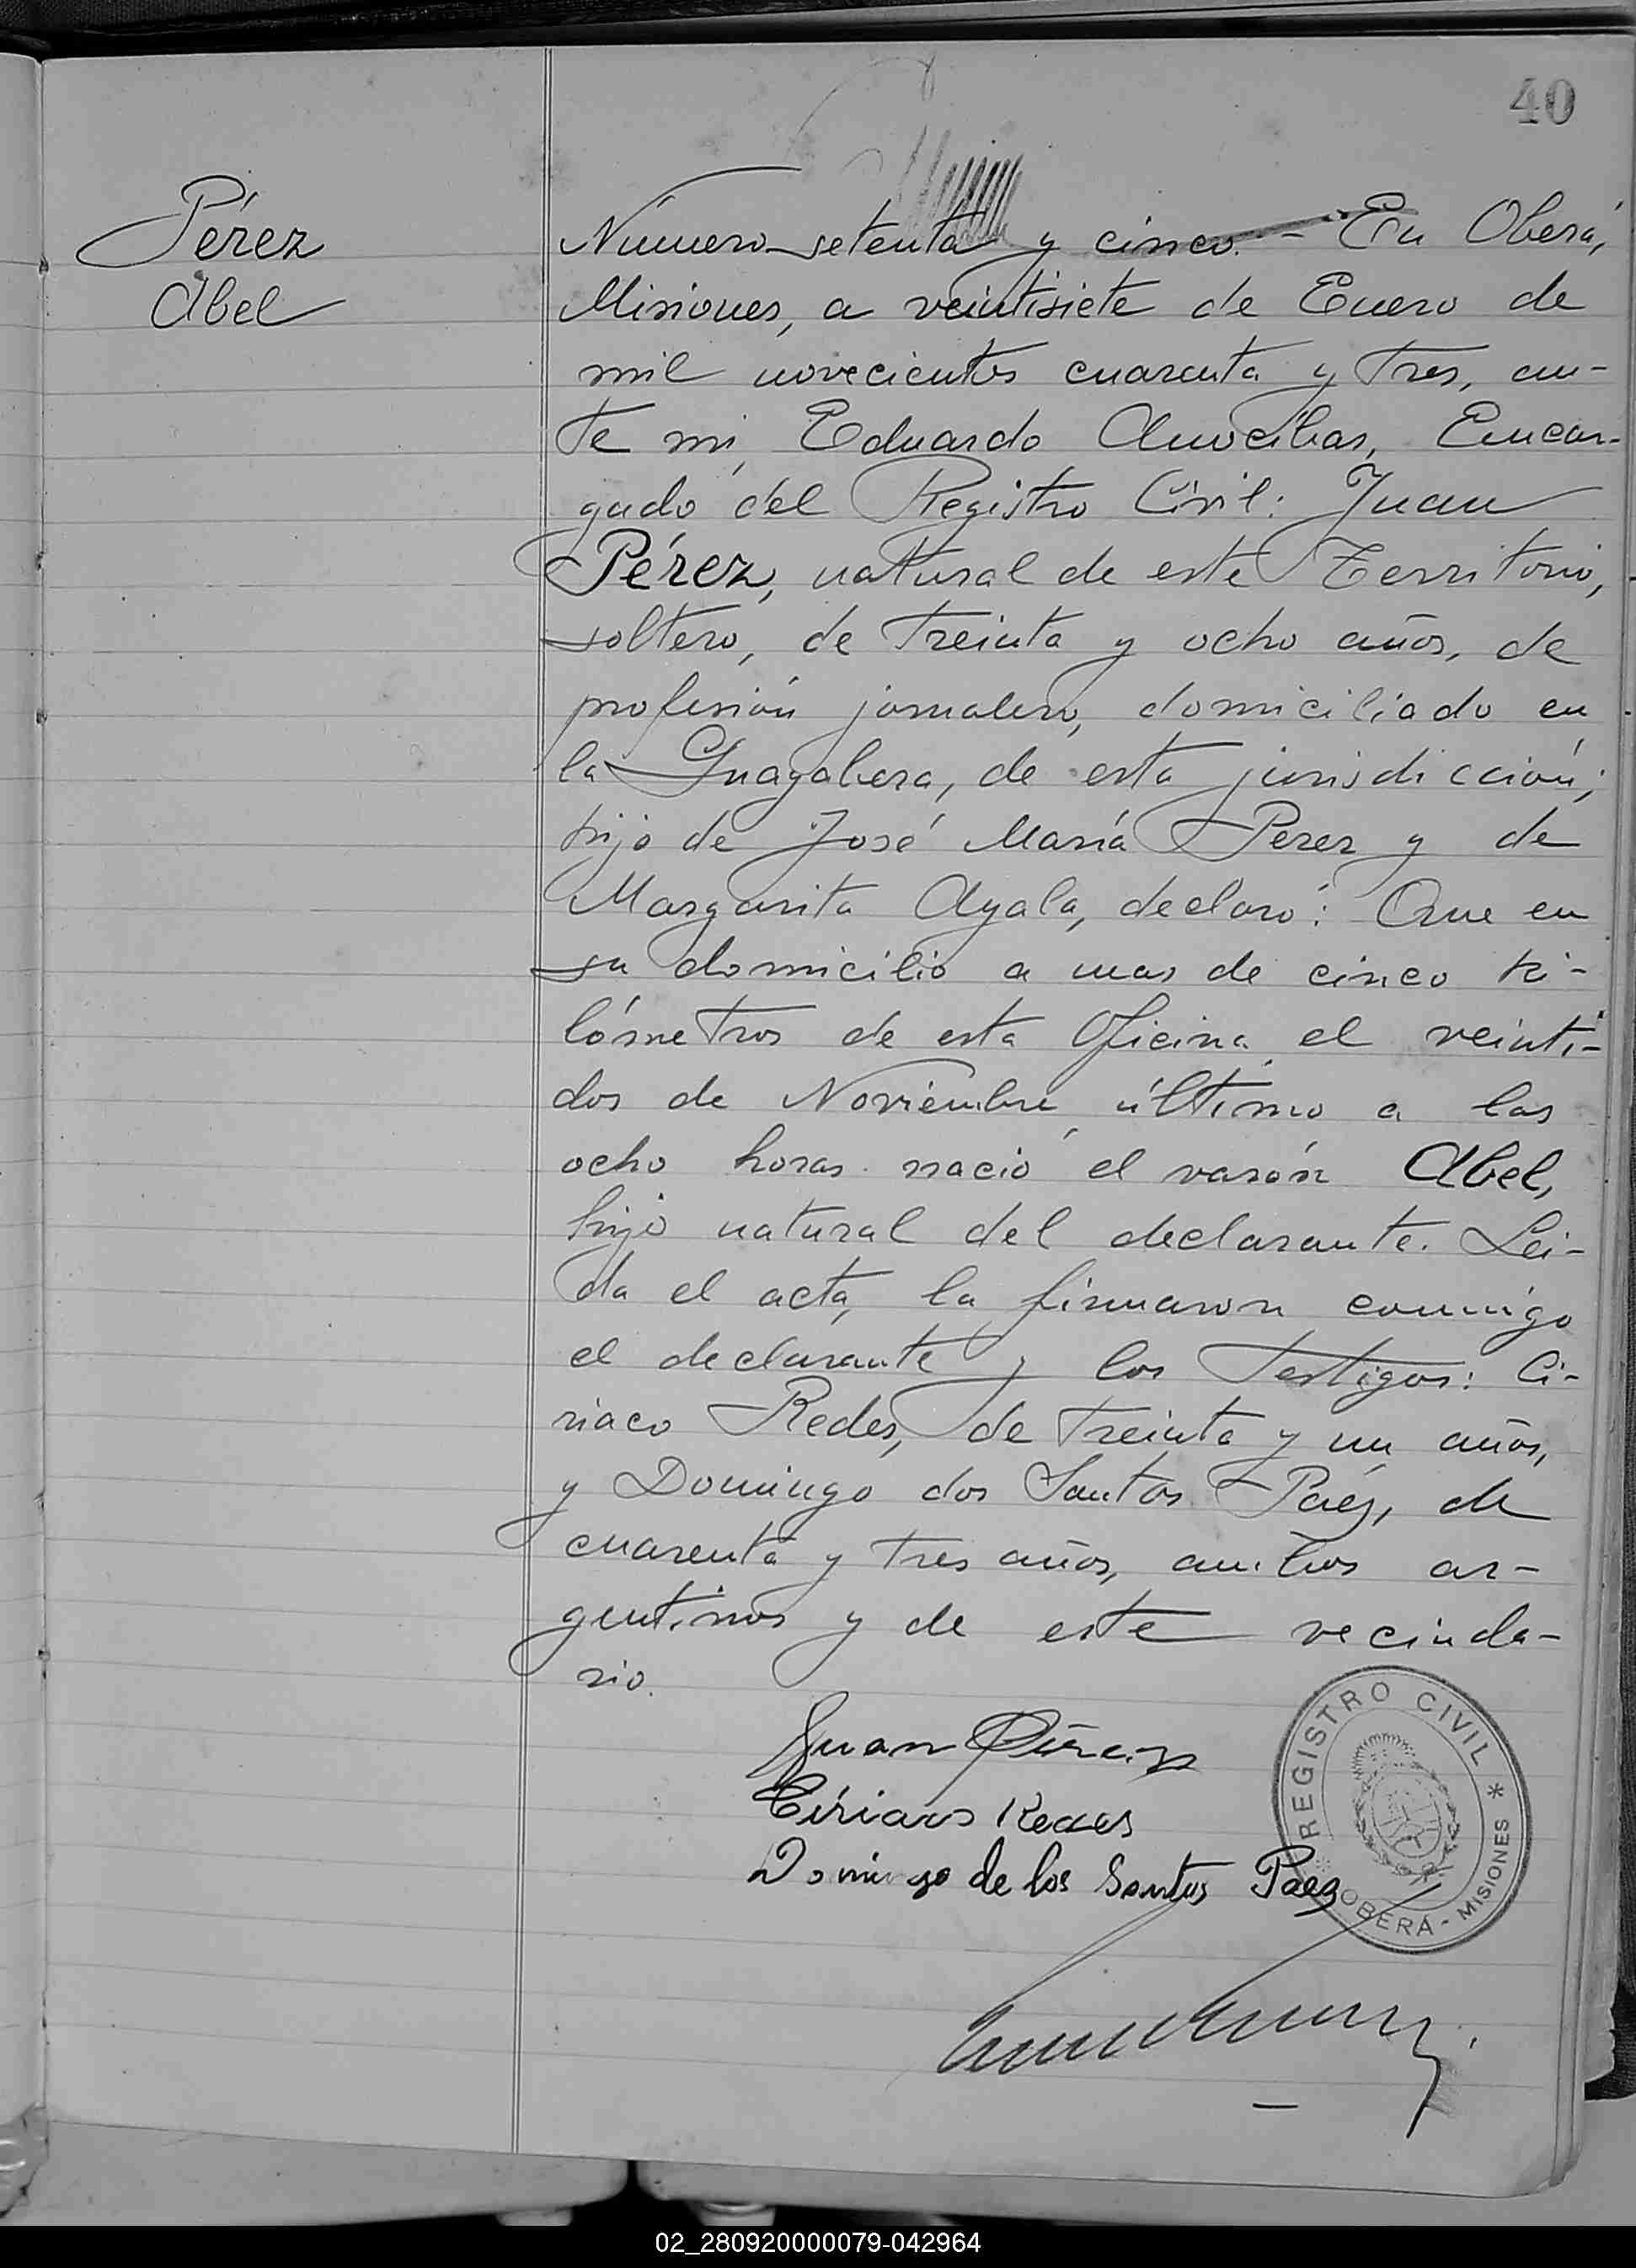 40
Pérez
Abel
Número setenta y cinco. - En Oberá,
Misiones, a veintisiete de Enero de
mil novecientos cuarenta y tres, an-
te mi, Eduardo Encar-
gado del Registro Civil: Juan
Pérez, natural de este Territorio,
soltero, de treinta y ocho años, de
profesión jornalero, domiciliado en
la Guayabera, de esta jurisdicción;
hijo de José María Perez y de
Margarita Ayala, declaró: Que en
su domicilio a mas de cinco ki-
lómetros de esta Oficina, el veinti-
dos de Noviembre último, a las
ocho horas nació el varón Abel,
hijo natural del declarante. Lei-
da el acta, la firmaron conmigo
el declarante y los testigos: Ci-
riaco Redes, de treinta y un años,
y Domingo dos Santos Paéz, de
cuarenta y tres años, ambos ar-
gentinos y de este vecinda-
rio.
Juan Pérez
Ciriaco
Domingo de los Santos Paez
REGISTRO CIVIL * OBERÁ - MISIONES *
02_280920000079-042964